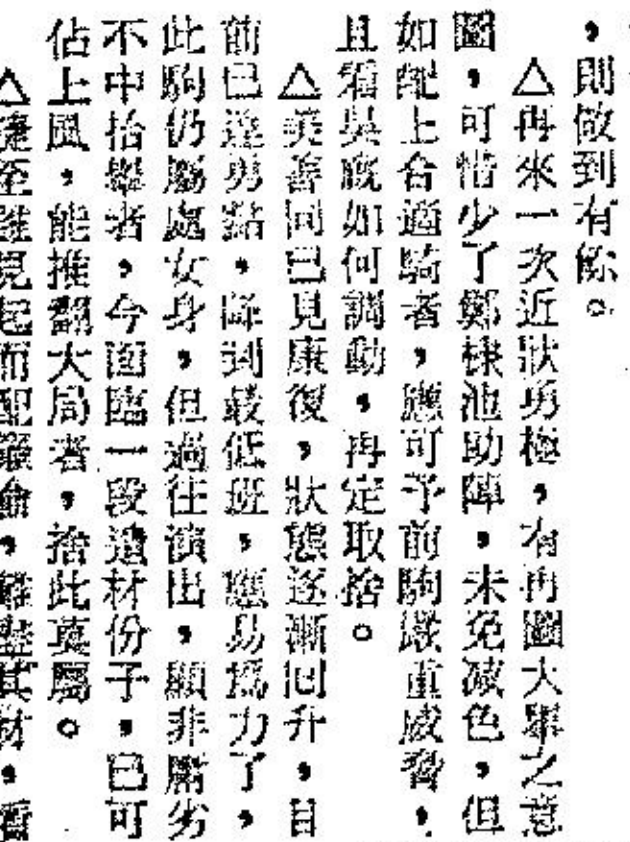 ，則做到有餘。
△再來一次近狀勇極，有再圖大舉之意
圖，可惜少了鄭棣池助陣，未免減色，但
如配上合適騎者，應可予前駒嚴重威脅，
且看吳廄如何調動，再定取捨。
△美善同已見康復，狀態逐漸回升，目
前已達勇點，降到最低班，應易搗力了，
此駒仍屬處女身，但過往演出，顯非屬劣
不中抬舉者，今面臨一段遺材份子，已可
佔上風，能推翻大局者，捨此莫屬。
△至見而配，其材，看